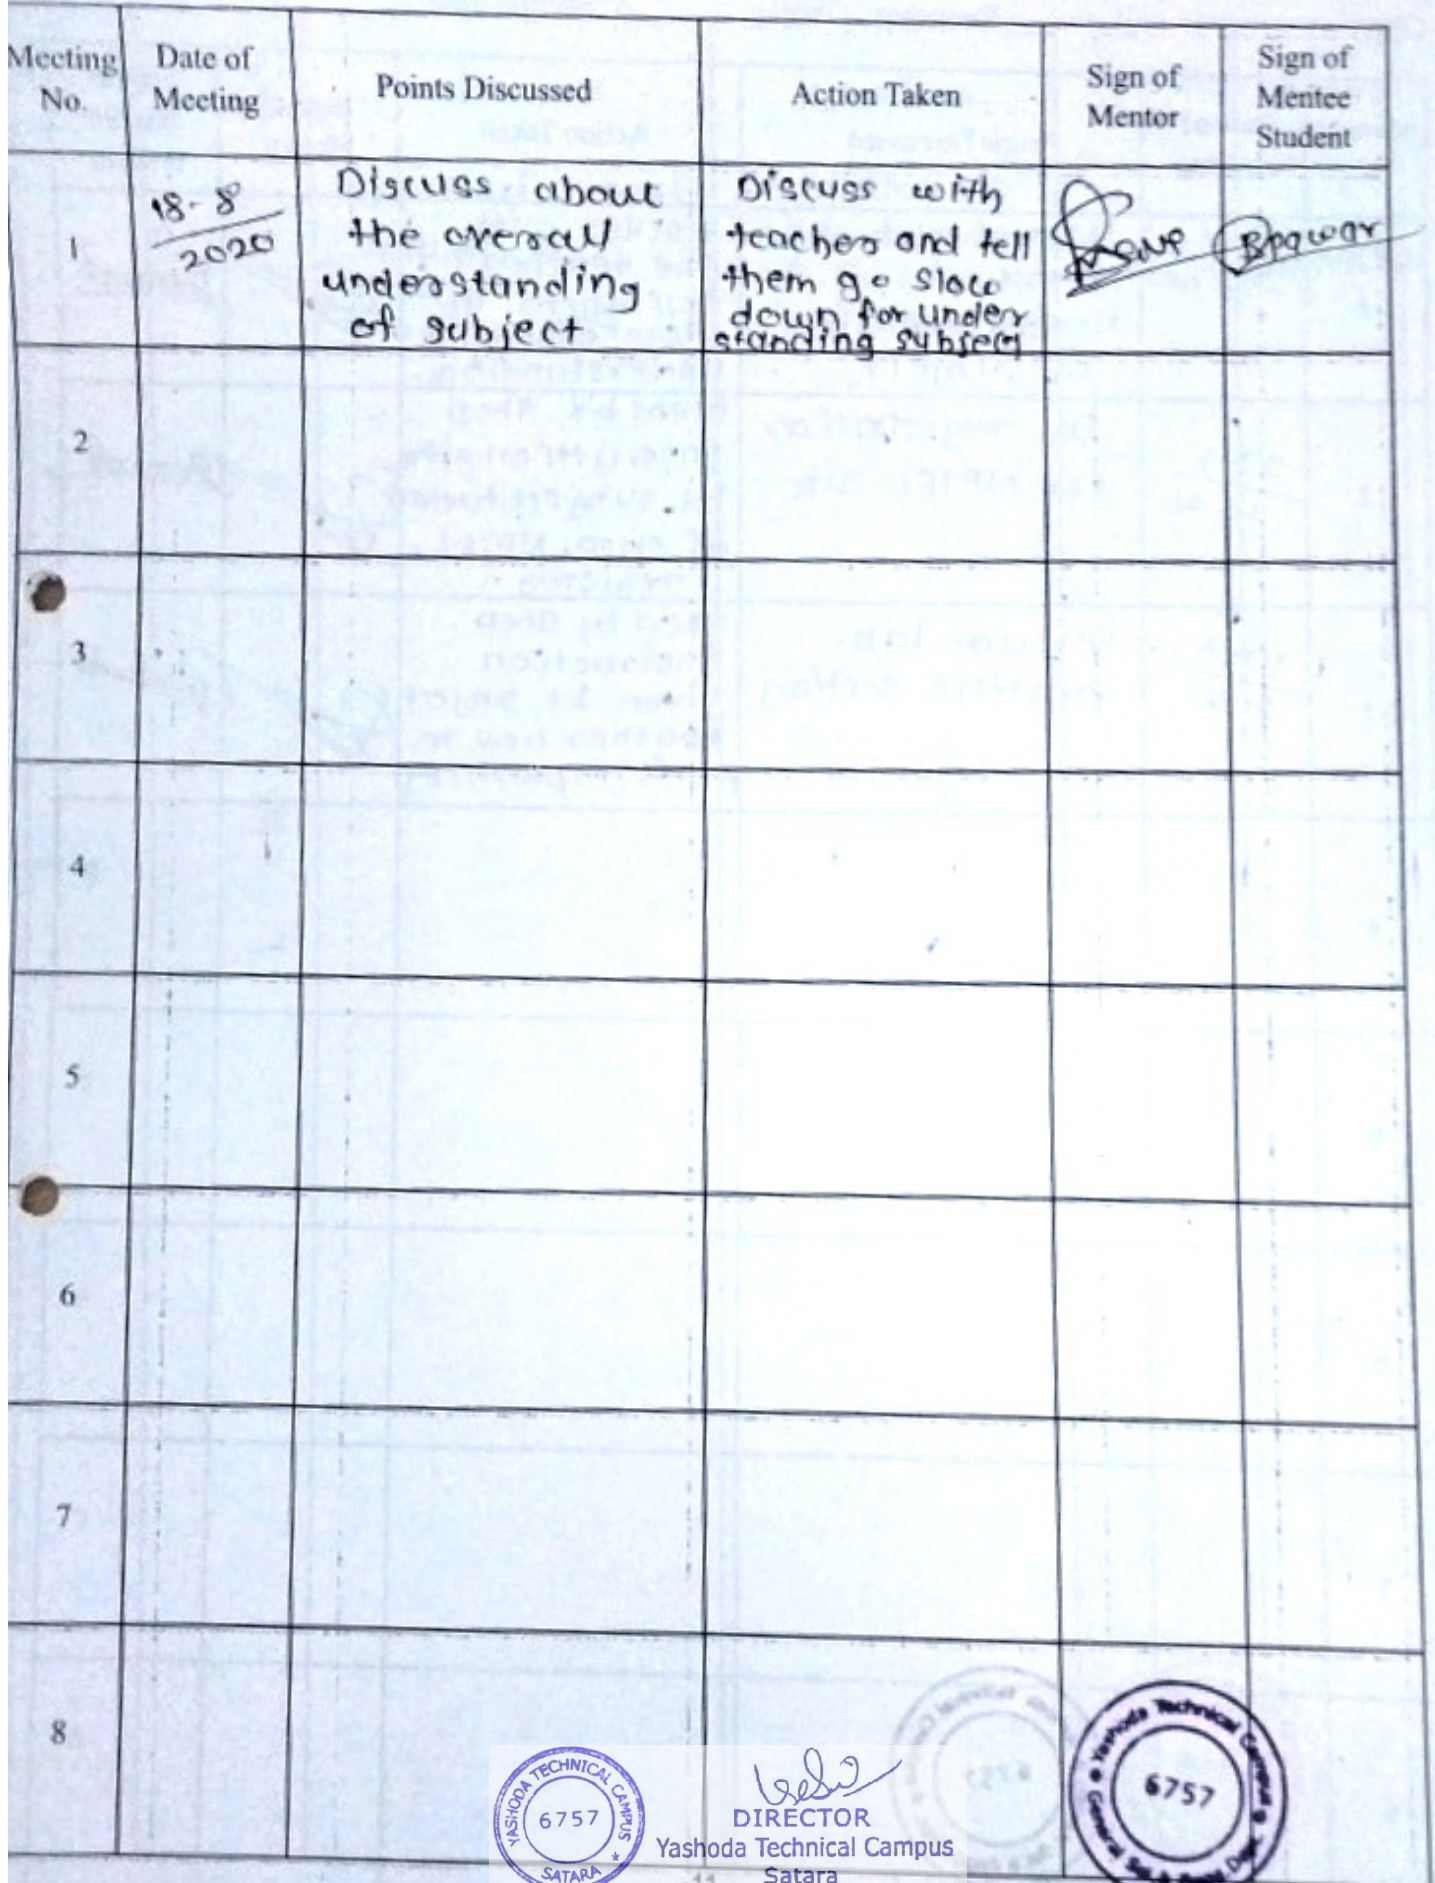 Meeting No.
Date of Meeting
Points Discussed
Action Taken
Sign of Mentor
Sign of Mentee Student
1
18-8
2020
Discuss about
the overall
understanding
of subject
Discuss with
teacher and tell
them go slow
down for under
standing subject
Bpawar
2
3
4
5
6
7
8
YASHODA TECHNICAL CAMPUS
6757
SATARA
DIRECTOR
Yashoda Technical Campus
Satara
Yashoda Technical Campus
6757
General
11